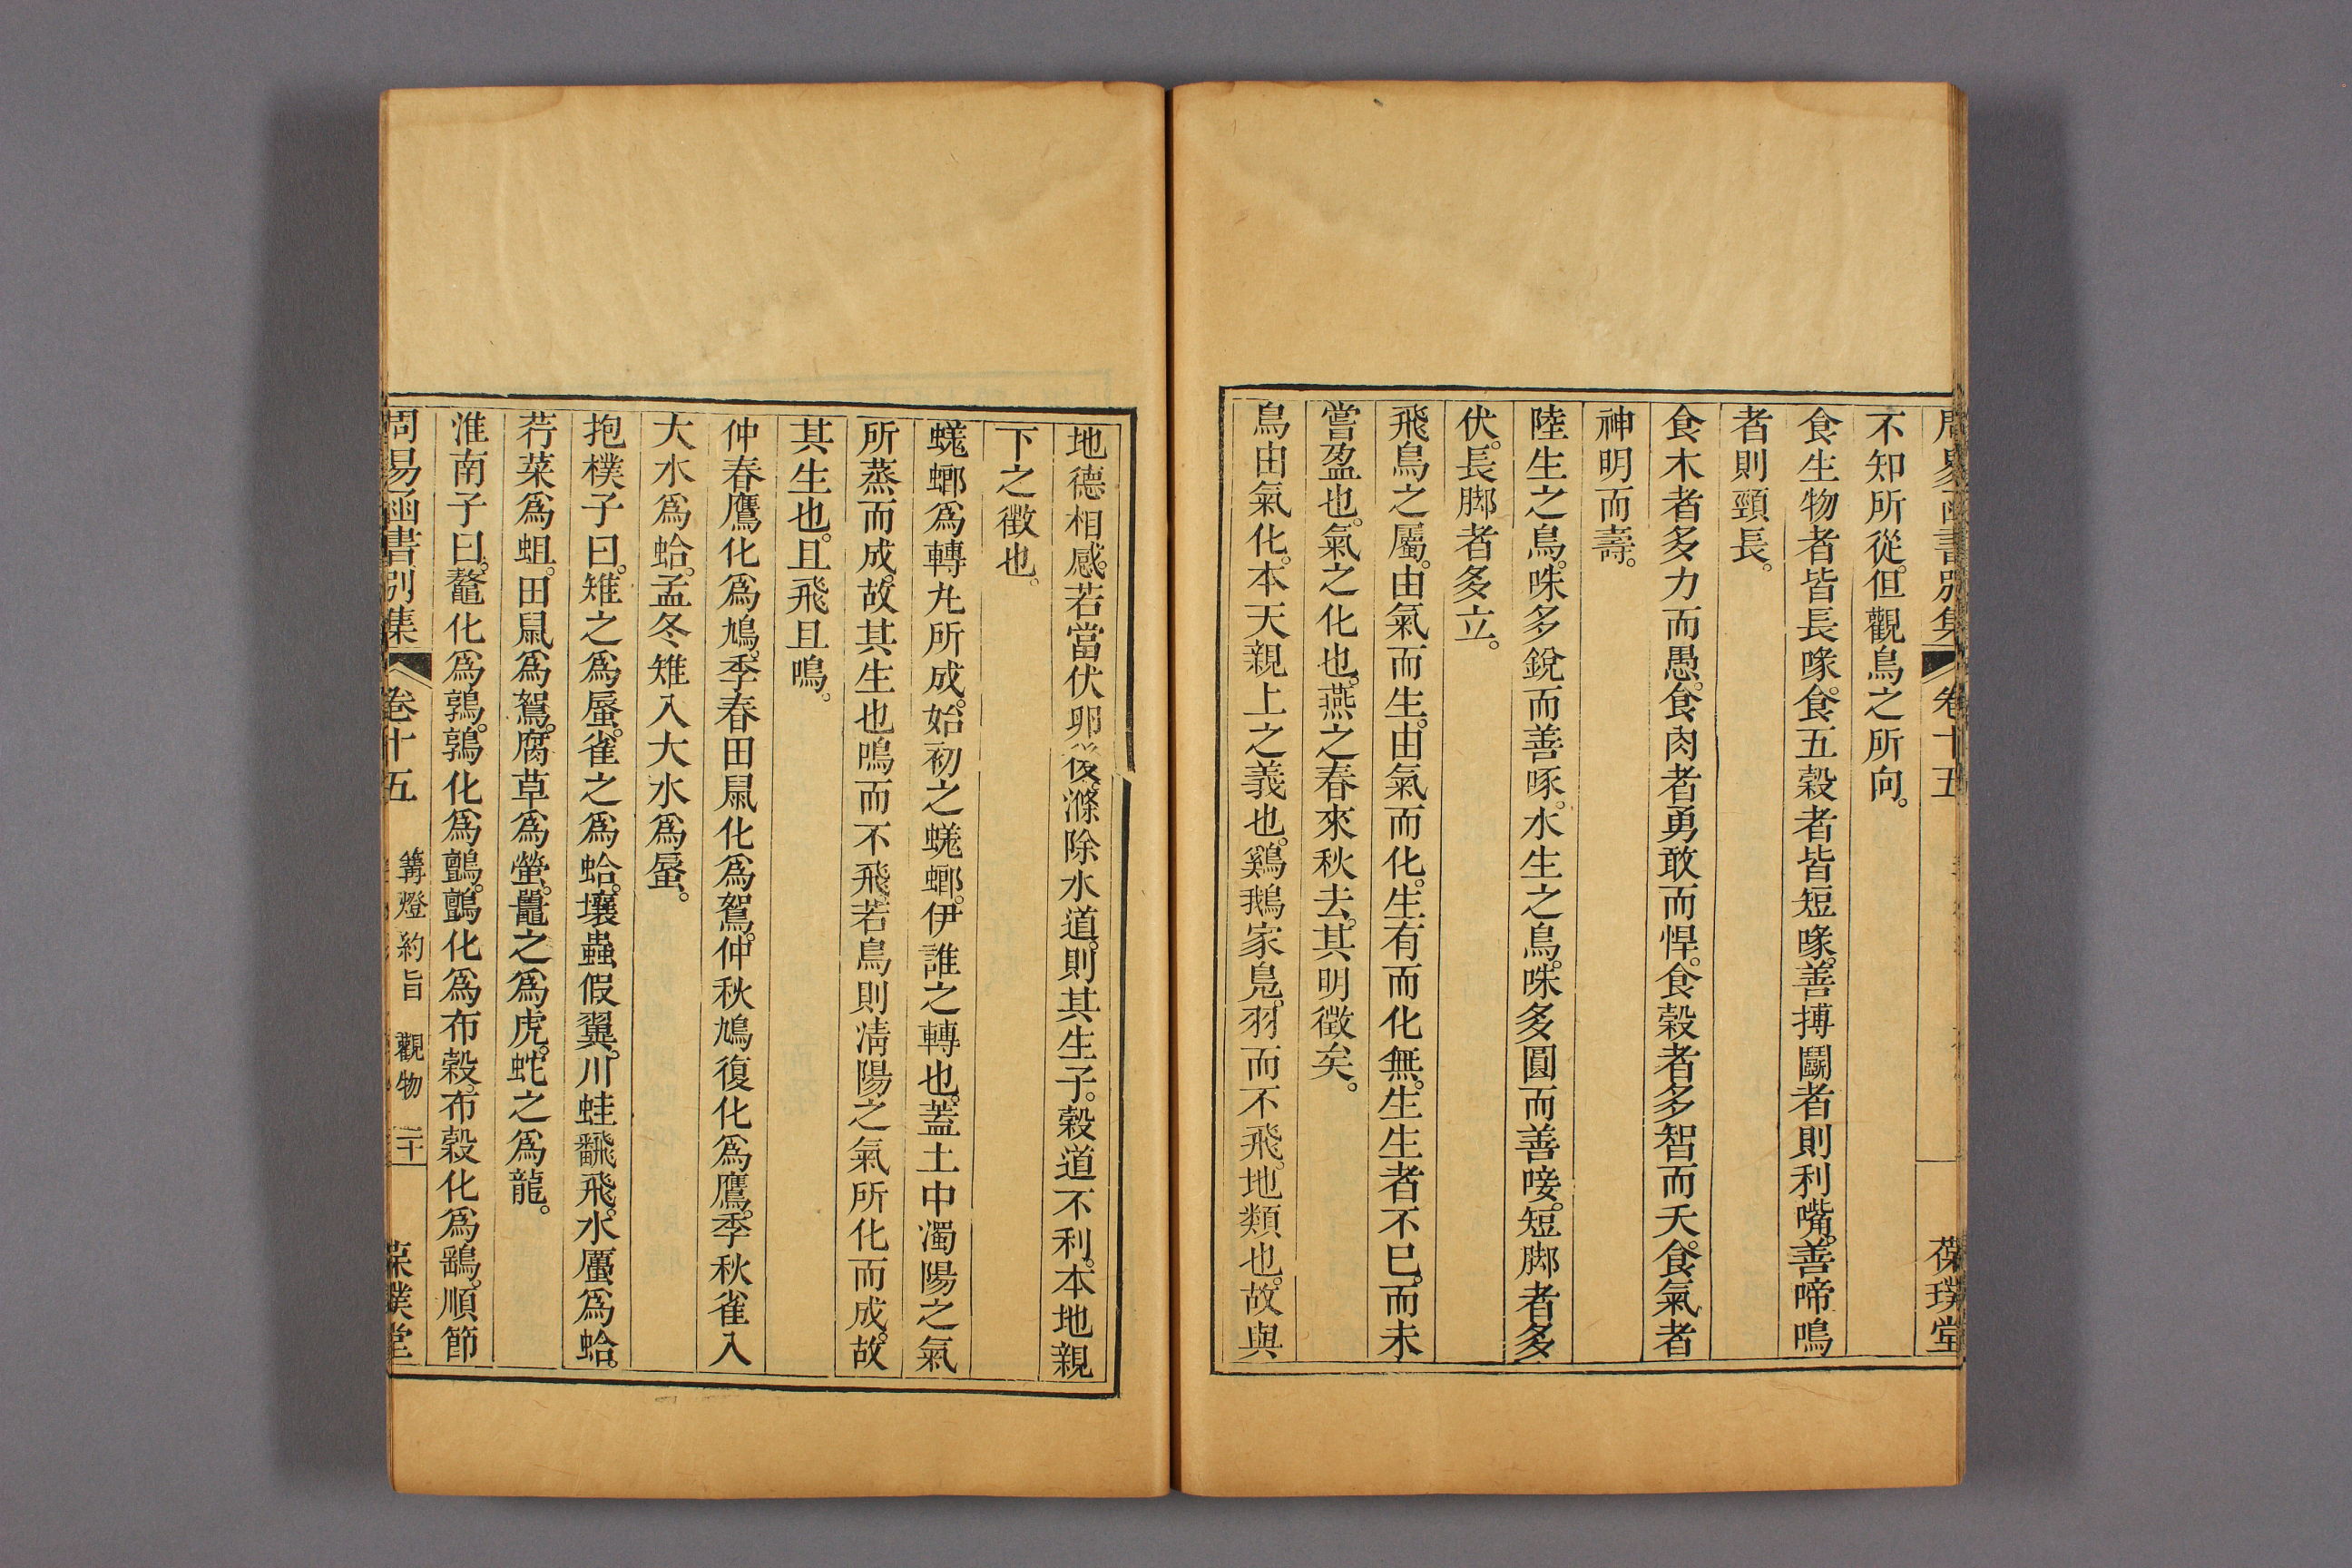 周易函書別集 卷十五 葆璞堂
不知所從。但觀鳥之所向。
食生物者皆長喙。食五穀者皆短喙。善搏鬭者則利嘴。善啼鳴
者則頸長。
食木者多力而愚。食肉者勇敢而悍。食穀者多智而夭。食氣者
神明而壽。
陸生之鳥。咮多銳而善啄。水生之鳥。咮多圓而善唼。短脚者多
伏。長脚者多立。
飛鳥之屬。由氣而生。由氣而化。生有而化無。生生者不已。而未
嘗盈也。氣之化也。燕之春來秋去。其明徵矣。
鳥由氣化。本天親上之義也。鷄鵝家鳧。羽而不飛。地類也。故與
地德相感。若當伏卵後滌除水道。則其生子。穀道不利。本地親
下之徵也。
蜣螂爲轉丸所成。始初之蜣螂。伊誰之轉也。蓋土中濁陽之氣
所蒸而成。故其生也鳴而不飛。若鳥則清陽之氣所化而成。故
其生也。且飛且鳴。
仲春鷹化爲鳩。季春田鼠化爲鴽。仲秋鳩復化爲鷹。季秋雀入
大水爲蛤。孟冬雉入大水爲蜃。
抱樸子曰。雉之爲蜃。雀之爲蛤。壤蟲假翼。川蛙翻飛。水蠆爲蛤。
荇菜爲蛆。田鼠爲鴽。腐草爲螢。鼉之爲虎。蛇之爲龍。
淮南子曰。鼇化爲鶉。鶉化爲鸇。鸇化爲布穀。布穀化爲鷂。順節
周易函書別集 卷十五 篝燈約旨 觀物 二十 葆璞堂